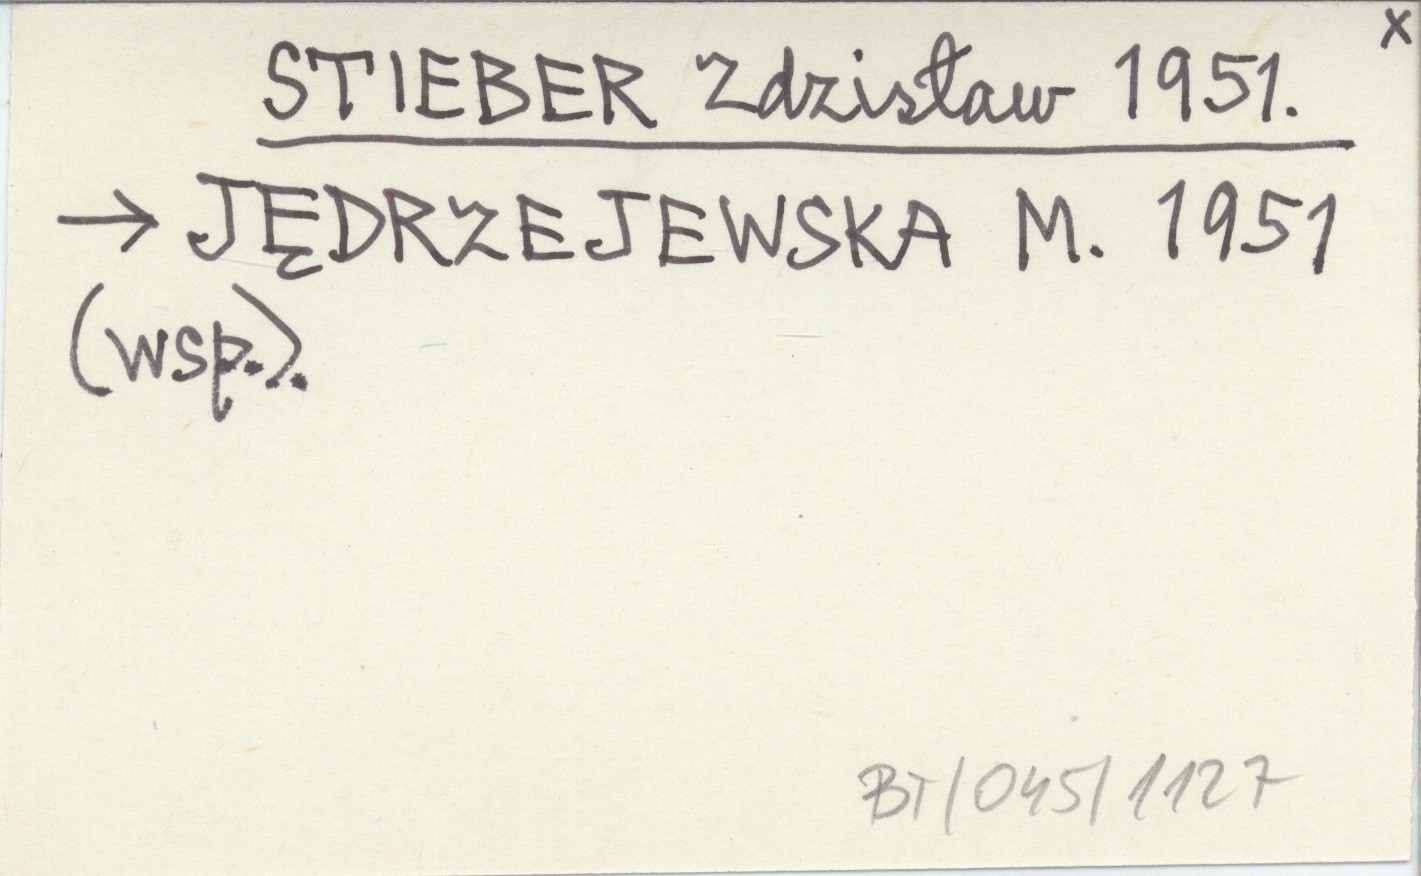 x
STIEBER Zdzisław 1951.
→ JĘDRZEJEWSKA M. 1951
(wsp.).
BT/045/1127